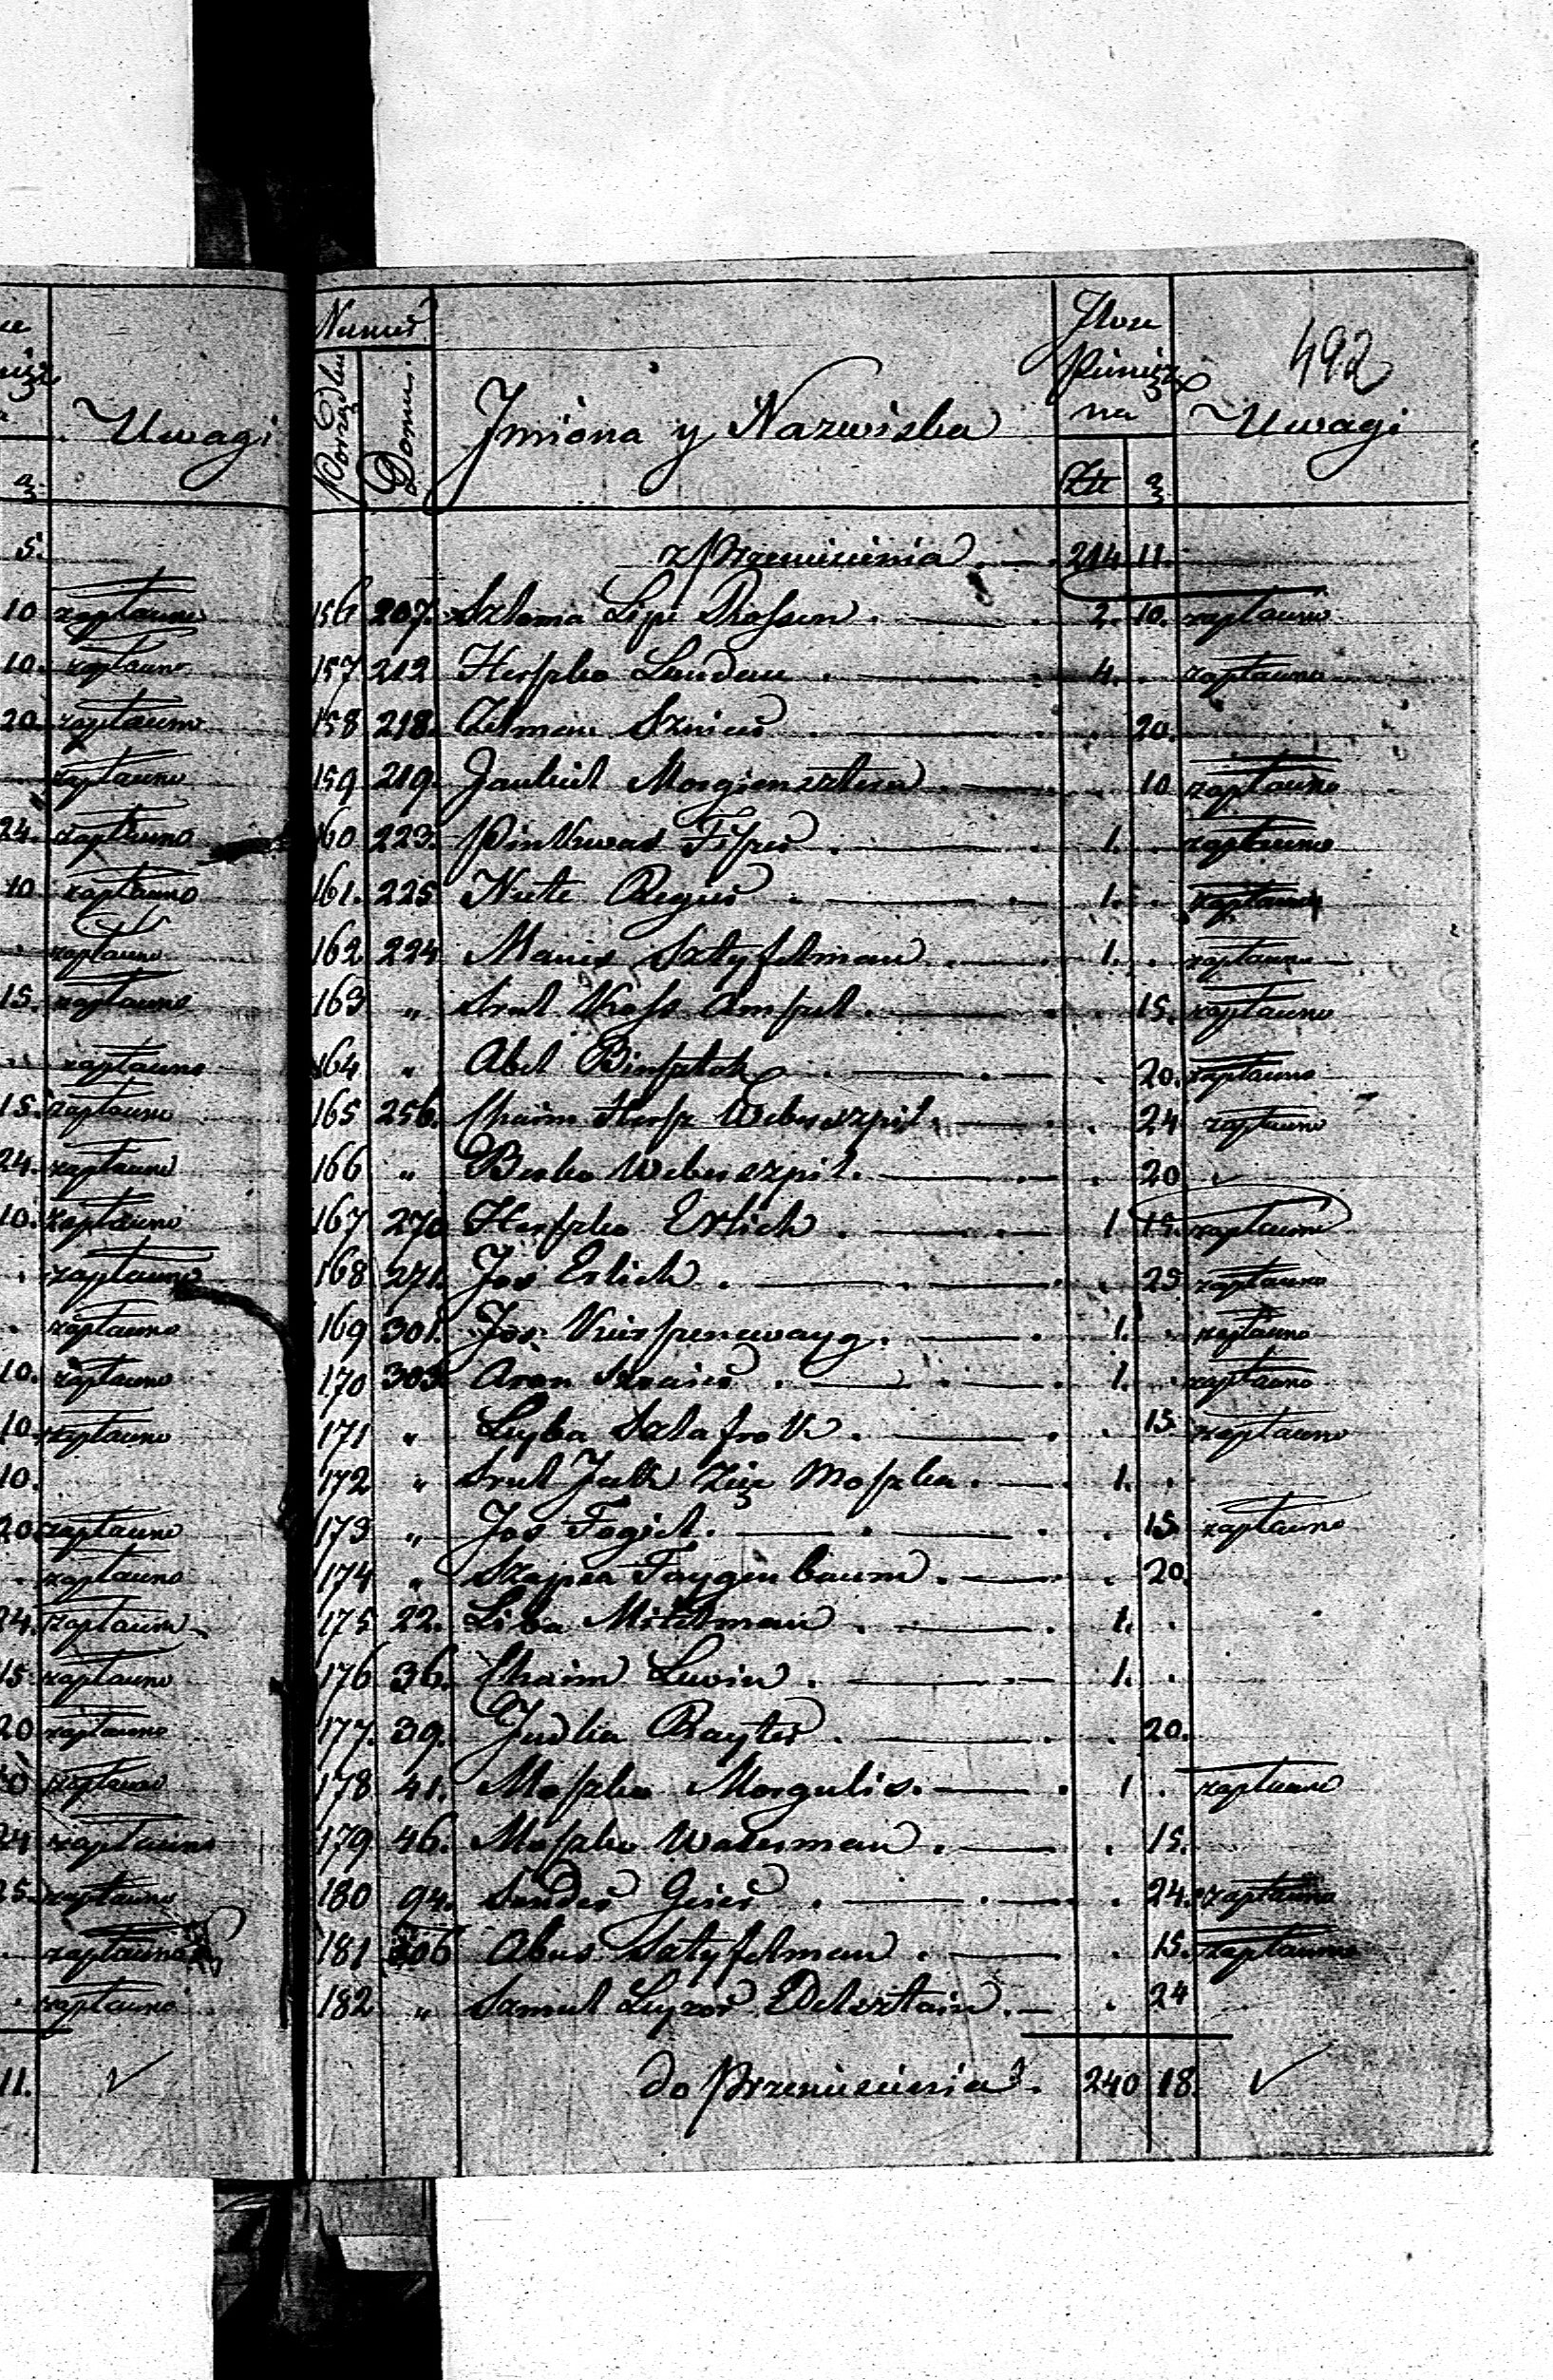 Uwagi
5.
10 zapłacono
10. zapłacono
20. zapłacono
zapłacono
24. zapłacono
10 zapłacono
zapłacono
15. zapłacono
zapłacono
15. zapłacono
24. zapłacono
10. zapłacono
zapłacono
zapłacono
10. zapłacono
10. zapłacono
10.
20. zapłacono
zapłacono
24. zapłacono
15 zapłacono
20 zapłacono
zapłacono
24 zapłacono
25. zapłacono
zapłacono
zapłacono
11. ✓
492
Numer Porządku Domu. Imiona y Nazwiska Ilość Pieniężna Złt g Uwagi
z przeniesienia. 214 11.
156 207. Szloma Lipe Rossen. 2. 10. zapłacono
157 212 Herszko Landau. 4. zapłacono
158 218. Zelman Sznier. 20.
159 219. Jankiel Morgiensztern. 10 zapłacono
160 223. Pinkwas Fiszer. 1. zapłacono
161. 225 Nute Reger. 1. zapłacono
162 224 Manes Sztyfelman. 1. zapłacono
163 " Srul 15. zapłacono
164 " Abel 20. zapłacono
165 256. Chaim Hersz Weberszpil. 24 zapłacono
166 " Berko Weberszpil. 20 ✓
167 270 Herszko Erlich. 1 15. zapłacono
168 271. Jos Erlich. 25 zapłacono
169 301. Jos 1. zapłacono
170 303. Aron Sznaier. 1. zapłacono
171 " Leyba Szlafrok. 15 zapłacono
172 " Srul Zięć Moszka. 1.
173 " Jos Fogiel. 15 zapłacono
174 " Szajna Faygenbaum. 20.
175 22. Liba Mitelman. 1.
176 36. Chaim Lewin. 1.
177. 39. Judka Rayter. 20.
178 41. Moszko Morgulis. 1 zapłacono
179 46. Moszko Waserman. 15.
180 94. Sender 24. zapłacono
181 306 Abus Sztyfelman. 15. zapłacono
182 " Szmul Leyzor Edelsztain. 24
do przeniesienia. 240 18. ✓